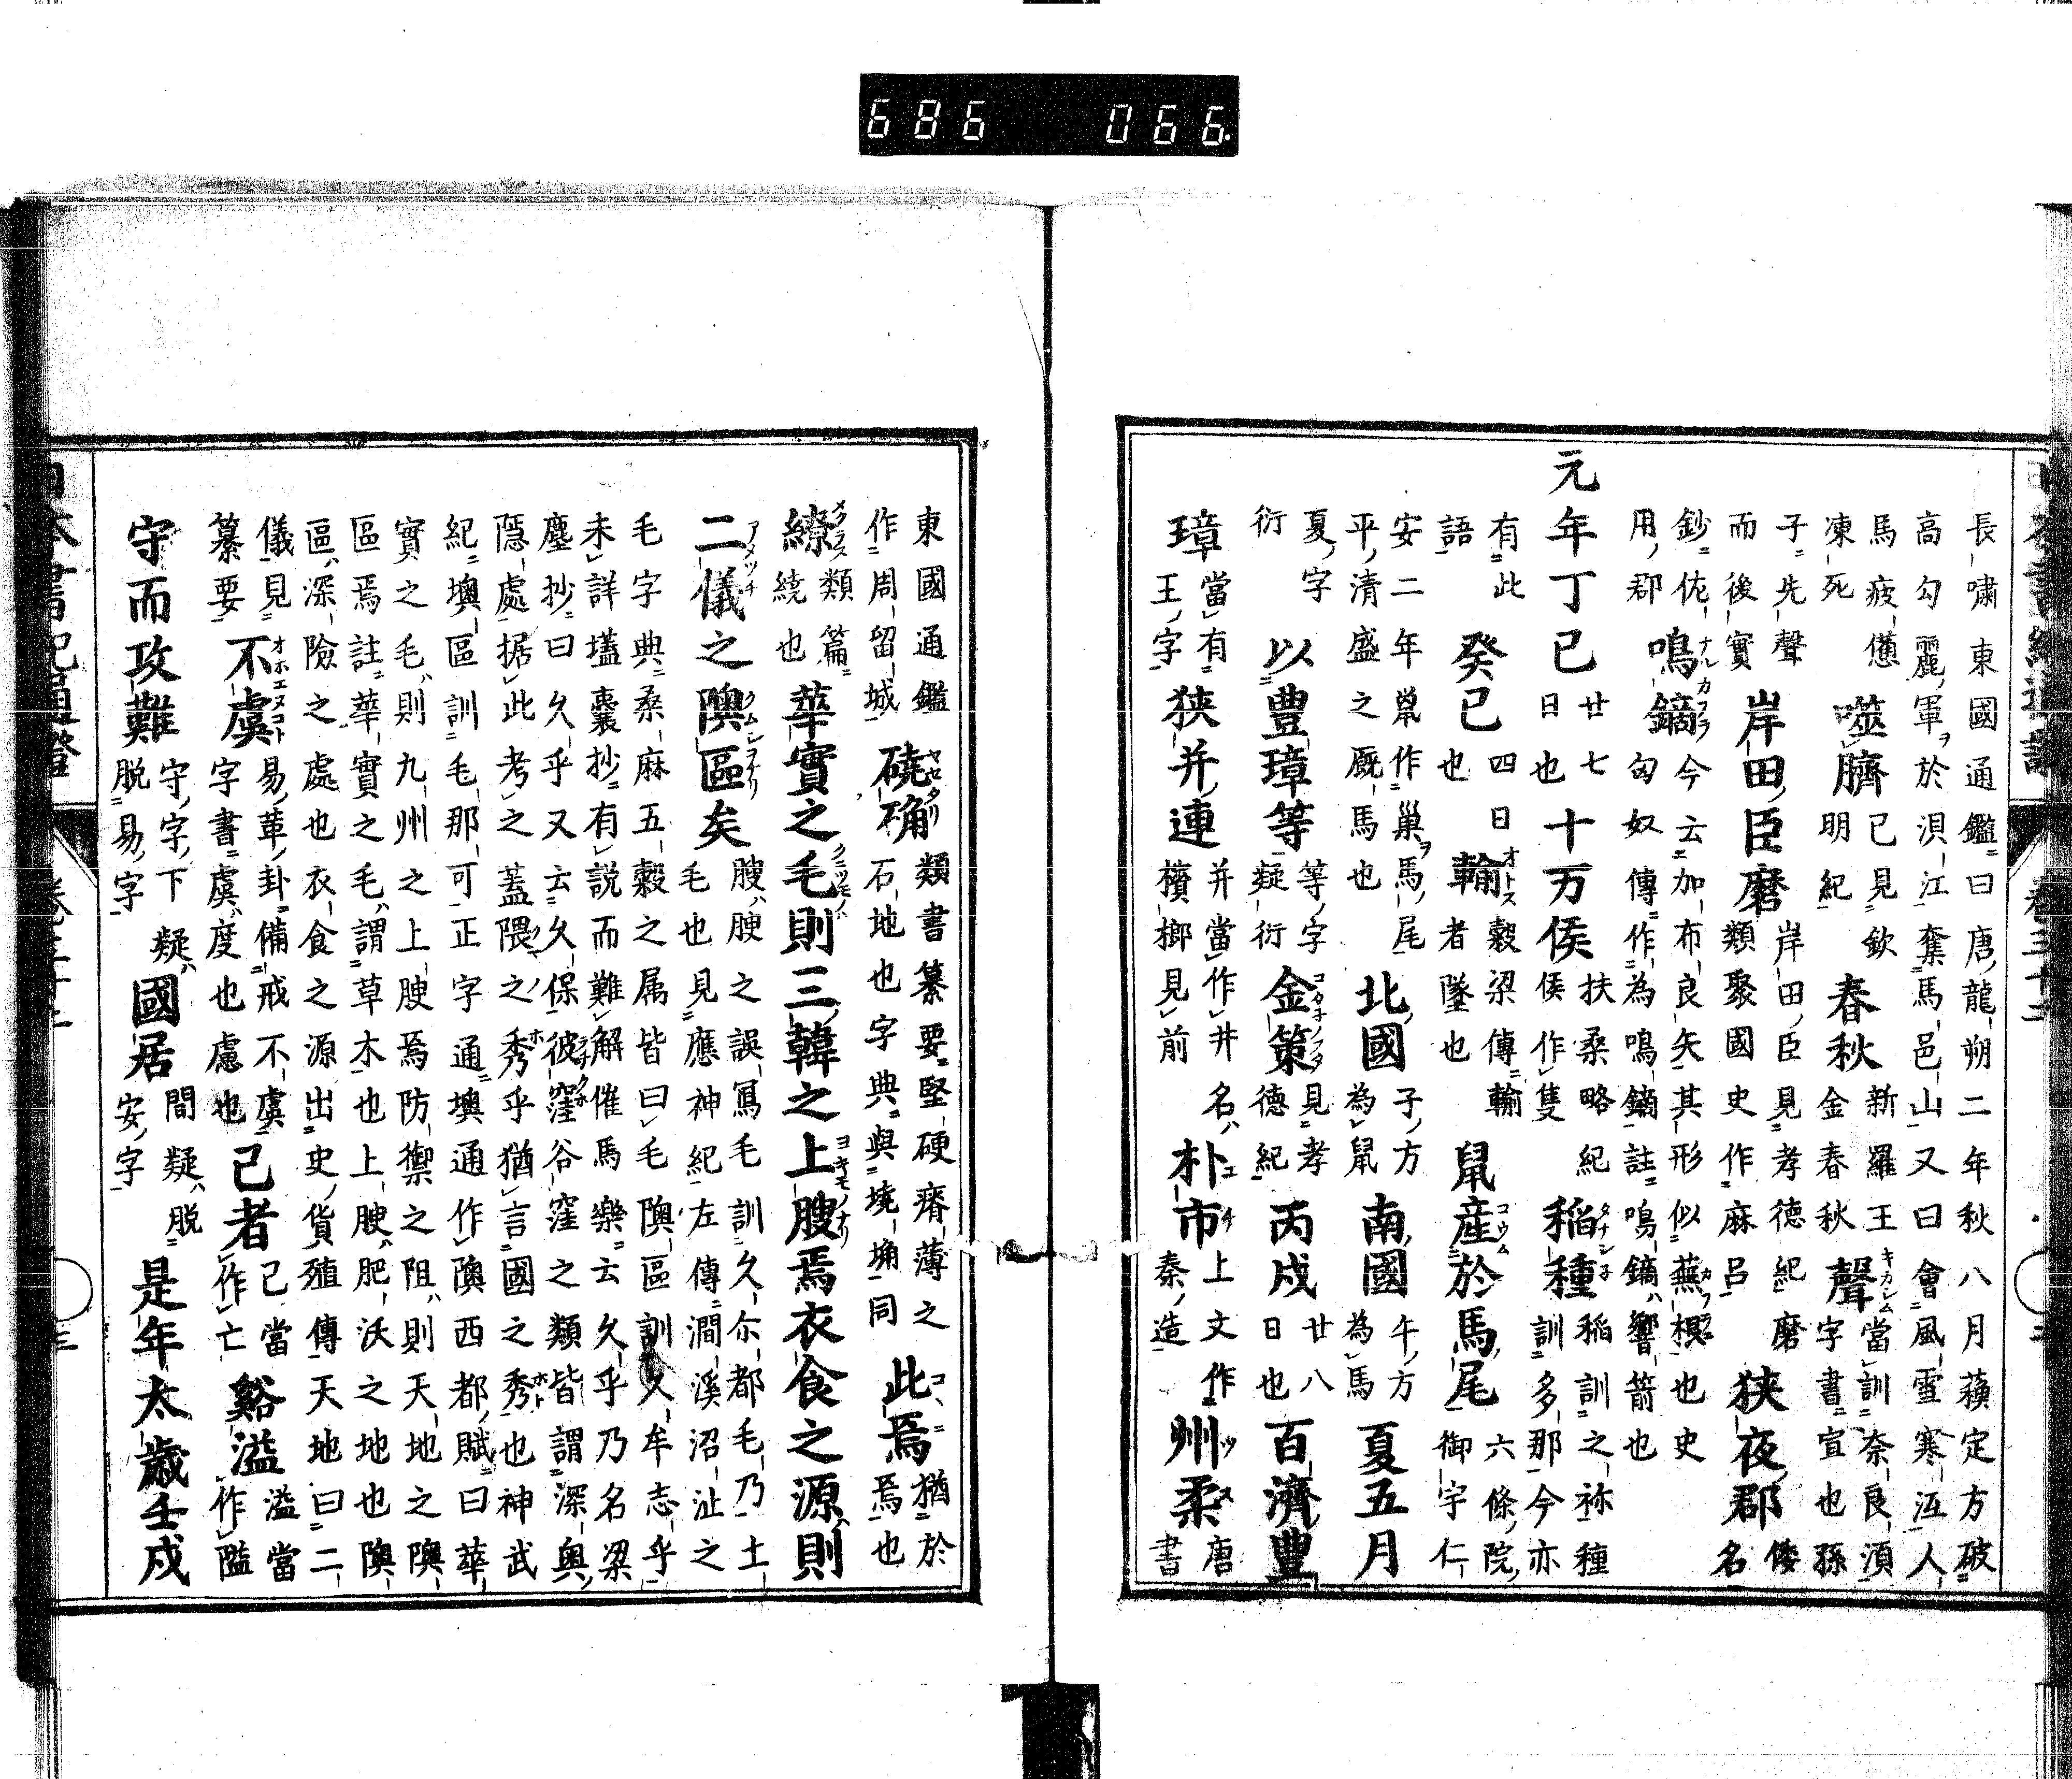 686 066
長嘯東國通鑑曰唐龍朔二年秋八月蘓定方破
高勾麗軍於浿江奪馬邑山又曰會風雪寒沍人
馬疲僿凍死
噬臍已見欽明紀
春秋新羅王金春秋
聲當訓奈良須字書宣也孫
子先聲而後實
岸田臣磨岸田臣見孝德紀磨類聚國史作麻呂
狹夜郡倭名
鈔佐用郡
鳴鏑今云加布良矢其形似蕪根也史匈奴傳作為鳴鏑註鳴鏑響箭也
元年丁巳廿七日也
十万侯扶桑略紀侯作隻
稲種稲訓之祢種訓多那今亦
有此語
癸巳四日也
輸穀梁傳輸者墜也
鼠産於馬尾六條院御宇仁
安二年巣作巢馬尾
平清盛之厩馬也
北國子方為鼠
南國午方為馬
夏五月
夏字衍
以豊璋等等字疑衍
金策見孝德紀
丙戌廿八日也
百濟豊
璋當有王字
狹井連并當作井檳榔見前
朴市名上文作秦造
州柔唐書
東國通鑑作周留城
磽确類書纂要堅硬瘠薄之石地也字典與墝埆同
此焉猶於焉也
繚類篇繞也
華實之毛則三韓之上腴焉衣食之源則
二儀之隩區矣腴腴之誤寫毛訓久尓都毛乃土毛也見應神紀左傳澗溪沼沚之
毛字典桑麻五穀之属皆曰毛隩區訓久牟志乎
未詳壒囊抄有説而難解催馬樂云久乎乃名梁
塵抄曰久乎又云久保彼窪谷窪之類皆謂深奥
隠處据此考之蓋隈之秀乎猶言國之秀也神武
紀墺區訓毛那可正字通墺通作隩西都賦曰華
實之毛則九州之上腴焉防禦之阻則天地之隩
區焉註華實之毛謂草木也上腴肥沃之地也隩
區深險之處也衣食之源出史貨殖傳天地曰二
儀見纂要
不虞易萃卦備戒不虞字書虞度也慮也
己者己當作亡
谿溢溢當作隘
守而攻難守字下疑脱易字
國居間疑脱安字
是年太歳壬戌